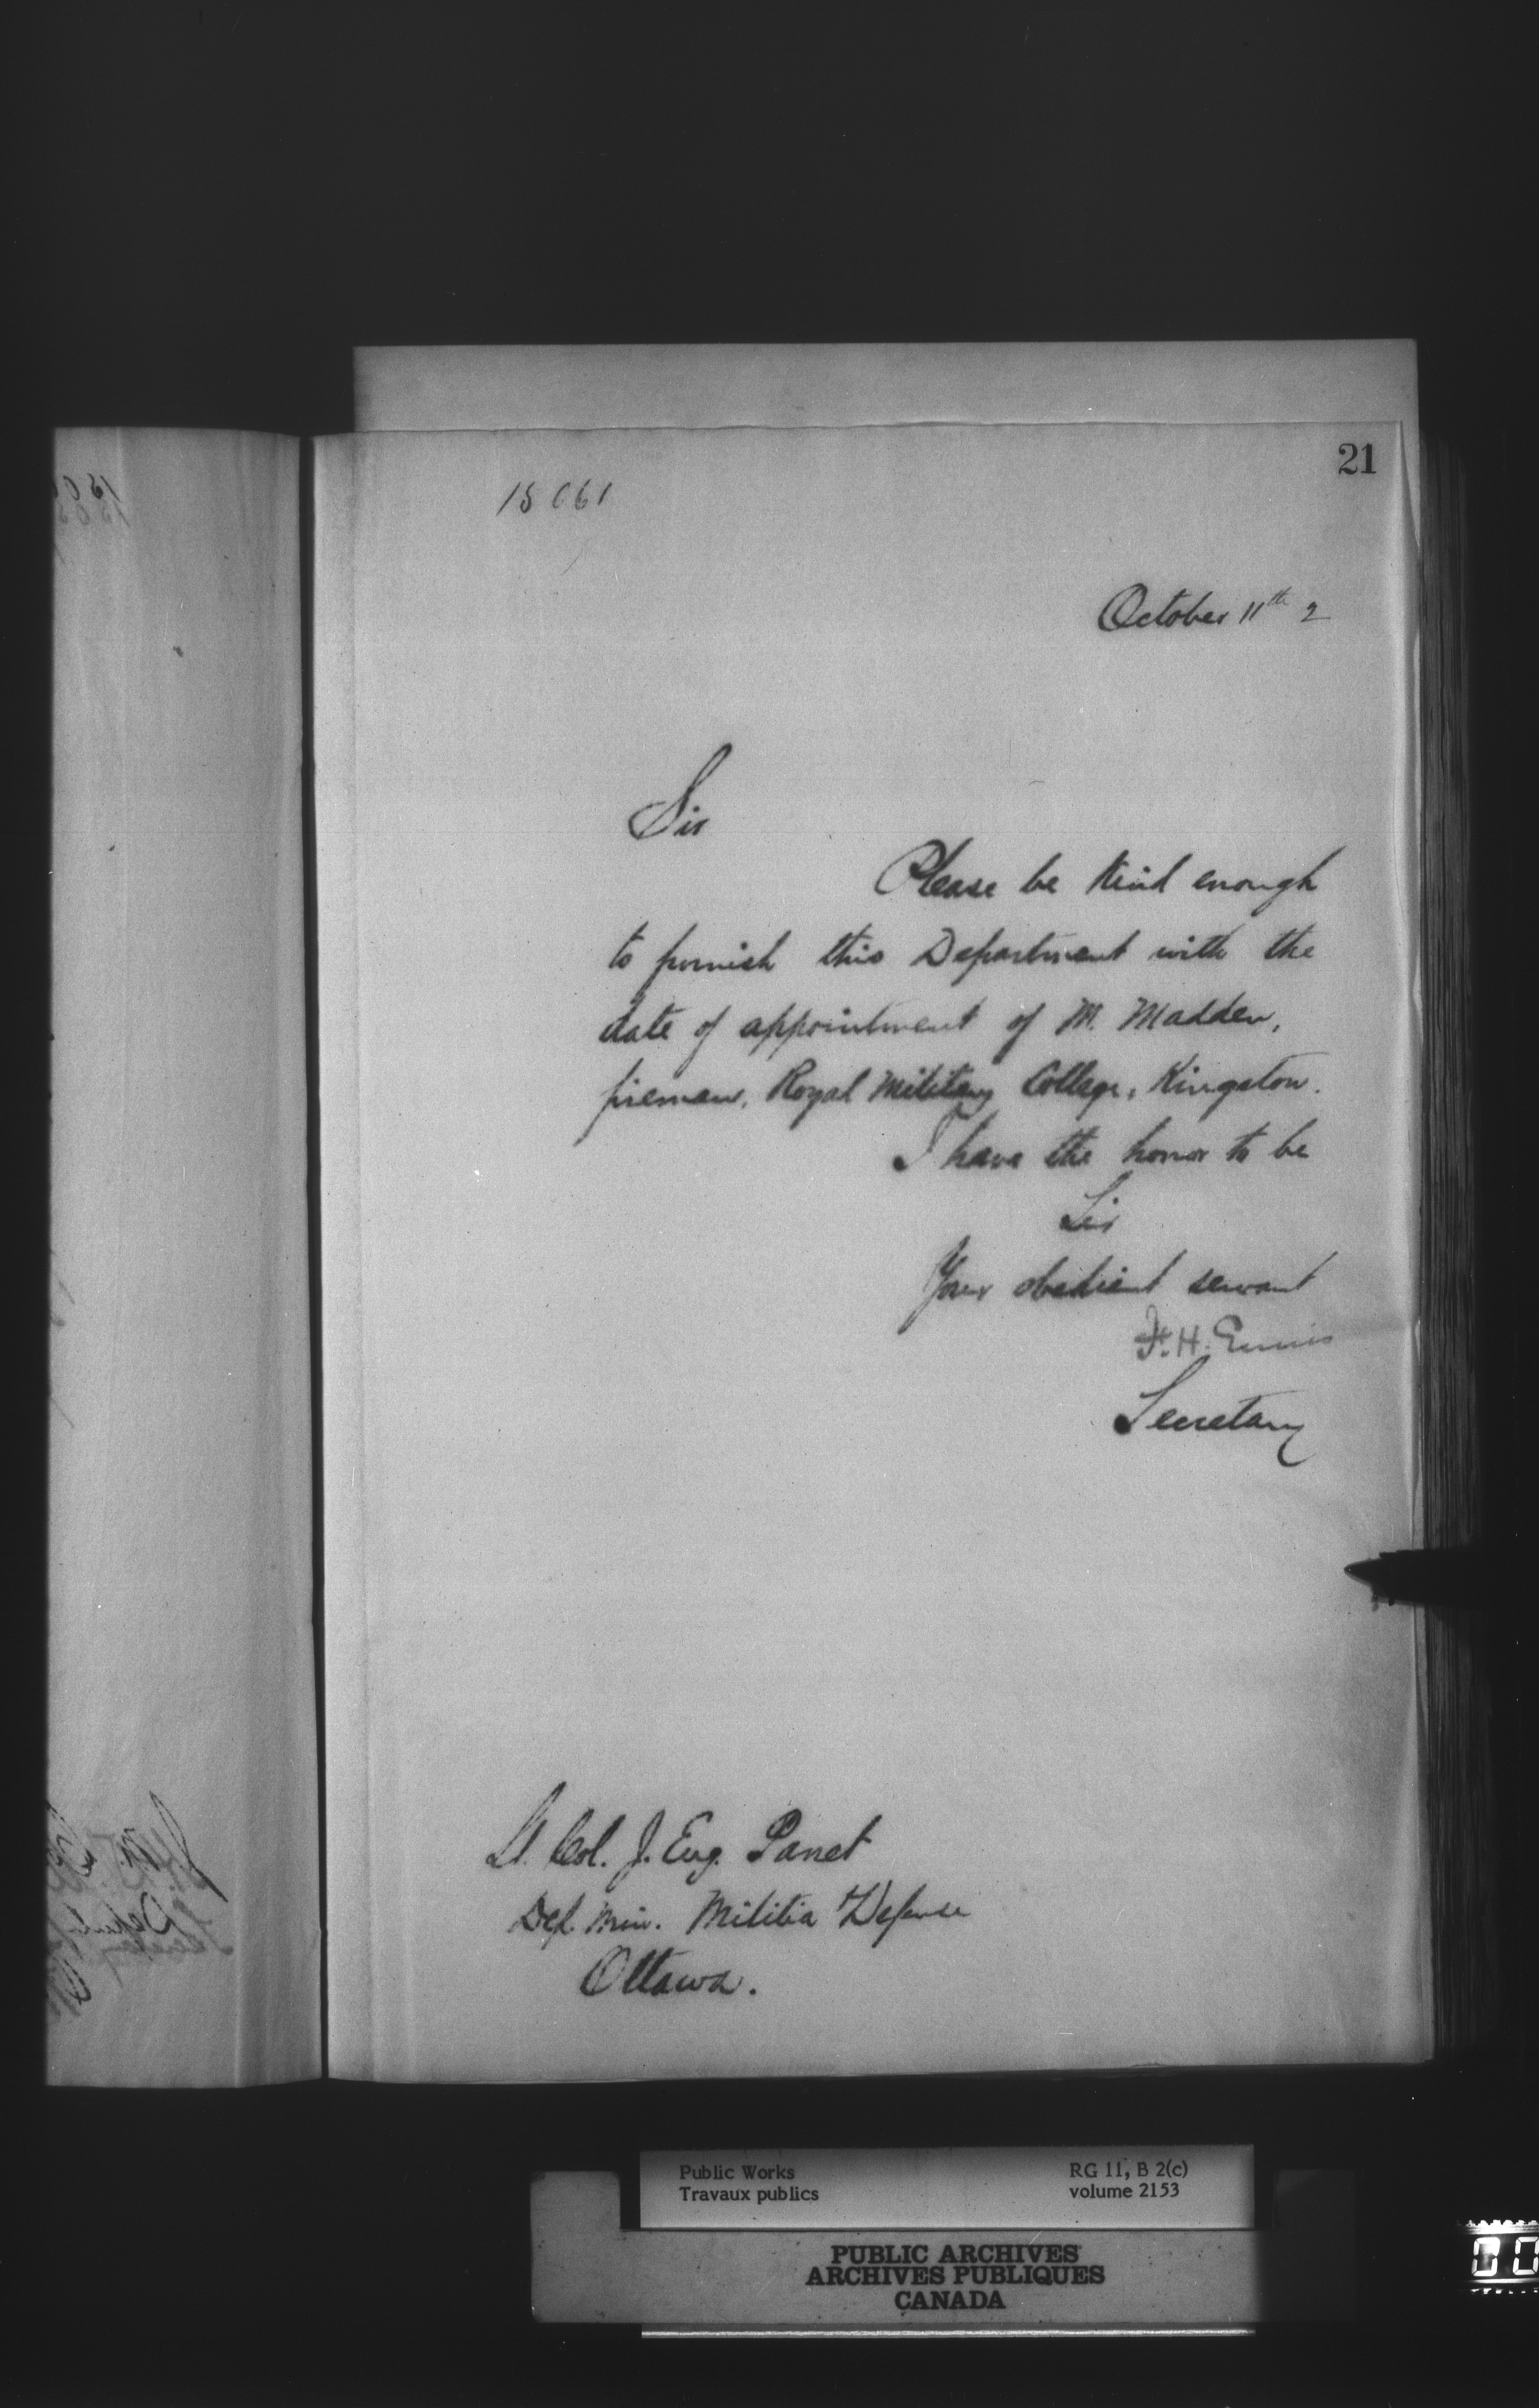 21
15061
October 11th 2
Sir
Please be kind enough
to furnish this Department with the
date of appointment of M. Madden,
fireman, Royal Military College, Kingston.
I have the honor to be
Sir
Your obedient servant
F. H. Ennis
Secretary
Lt. Col. J. Eug. Panet
Dep. Min. Militia & Defense
Ottawa.
Public Works
Travaux publics
RG 11, B 2(c)
volume 2153
PUBLIC ARCHIVES
ARCHIVES PUBLIQUES
CANADA